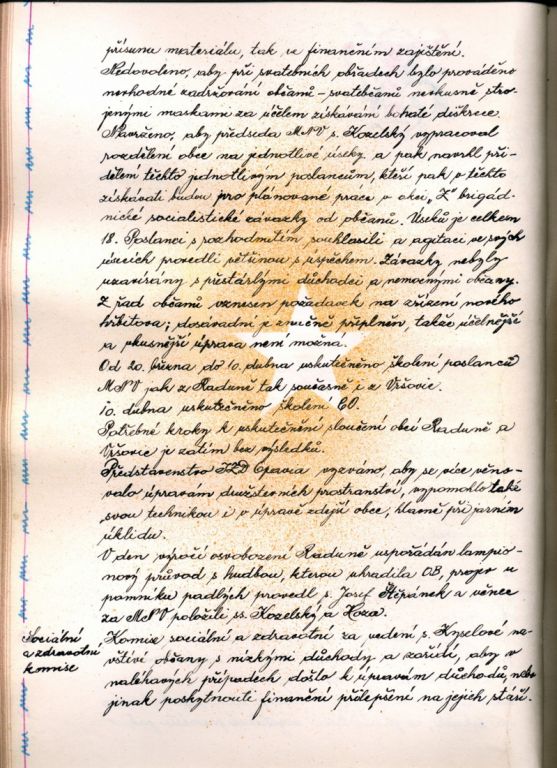 přísunu materiálu, tak ve finančním zajištění.
Nedovoleno, aby při svatebních obřadech bylo prováděno
nevhodné zadržování občanů - svatebčanů nevkusně stro-
jenými maskami za účelem získávání bohaté diškrece.
Navrženo, aby předseda MNV s. Kozelský vypracoval
rozdělení obce na jednotlivé úseky a pak navrhl při-
dělení těchto jednotlivým poslancům, kteří pak v těchto
získávati budou pro plánované práce v akci „Z" brigád-
nické socialistické závazky od občanů. Úseků je celkem
18. Poslanci s rozhodnutím souhlasili a agitaci ve svých
úsecích provedli většinou s úspěchem. Závazky nebyly
uzavírány s přestárlými důchodci a nemocnými občany.
Z řad občanů vznesen požadavek na zřízení nového
hřbitova; dosavadní je značně přeplněn, takže účelnější
a vkusnější úprava není možná.
Od 20. března do 10. dubna uskutečněno školení poslanců
MNV jak z Raduně tak současně i z Vršovic.
10. dubna uskutečněno školení CO.
Potřebné kroky k uskutečnění sloučení obcí Raduně a
Vršovic je zatím bez výsledků.
Představenstvo JZD Opavia vyzváno, aby se více věno-
valo úpravám družstevních prostranství, vypomohlo také
svou technikou i v úpravě zdejší obce, hlavně při jarním
úklidu.
V den výročí osvobození Raduně uspořádán lampio-
nový průvod s hudbou, kterou uhradila OB, projev u
pomníku padlých provedl s. Josef Štěpánek a věnce
za MNV položili ss. Kozelský a Hoza.
Sociální
a zdravotní
komise
Komise sociální a zdravotní za vedení s. Kyselové na-
vštíví občany s nízkými důchody a zařídí, aby v
naléhavých případech došlo k úpravám důchodů nebo
jinak poskytnouti finanční přilepšení na jejich stáří.